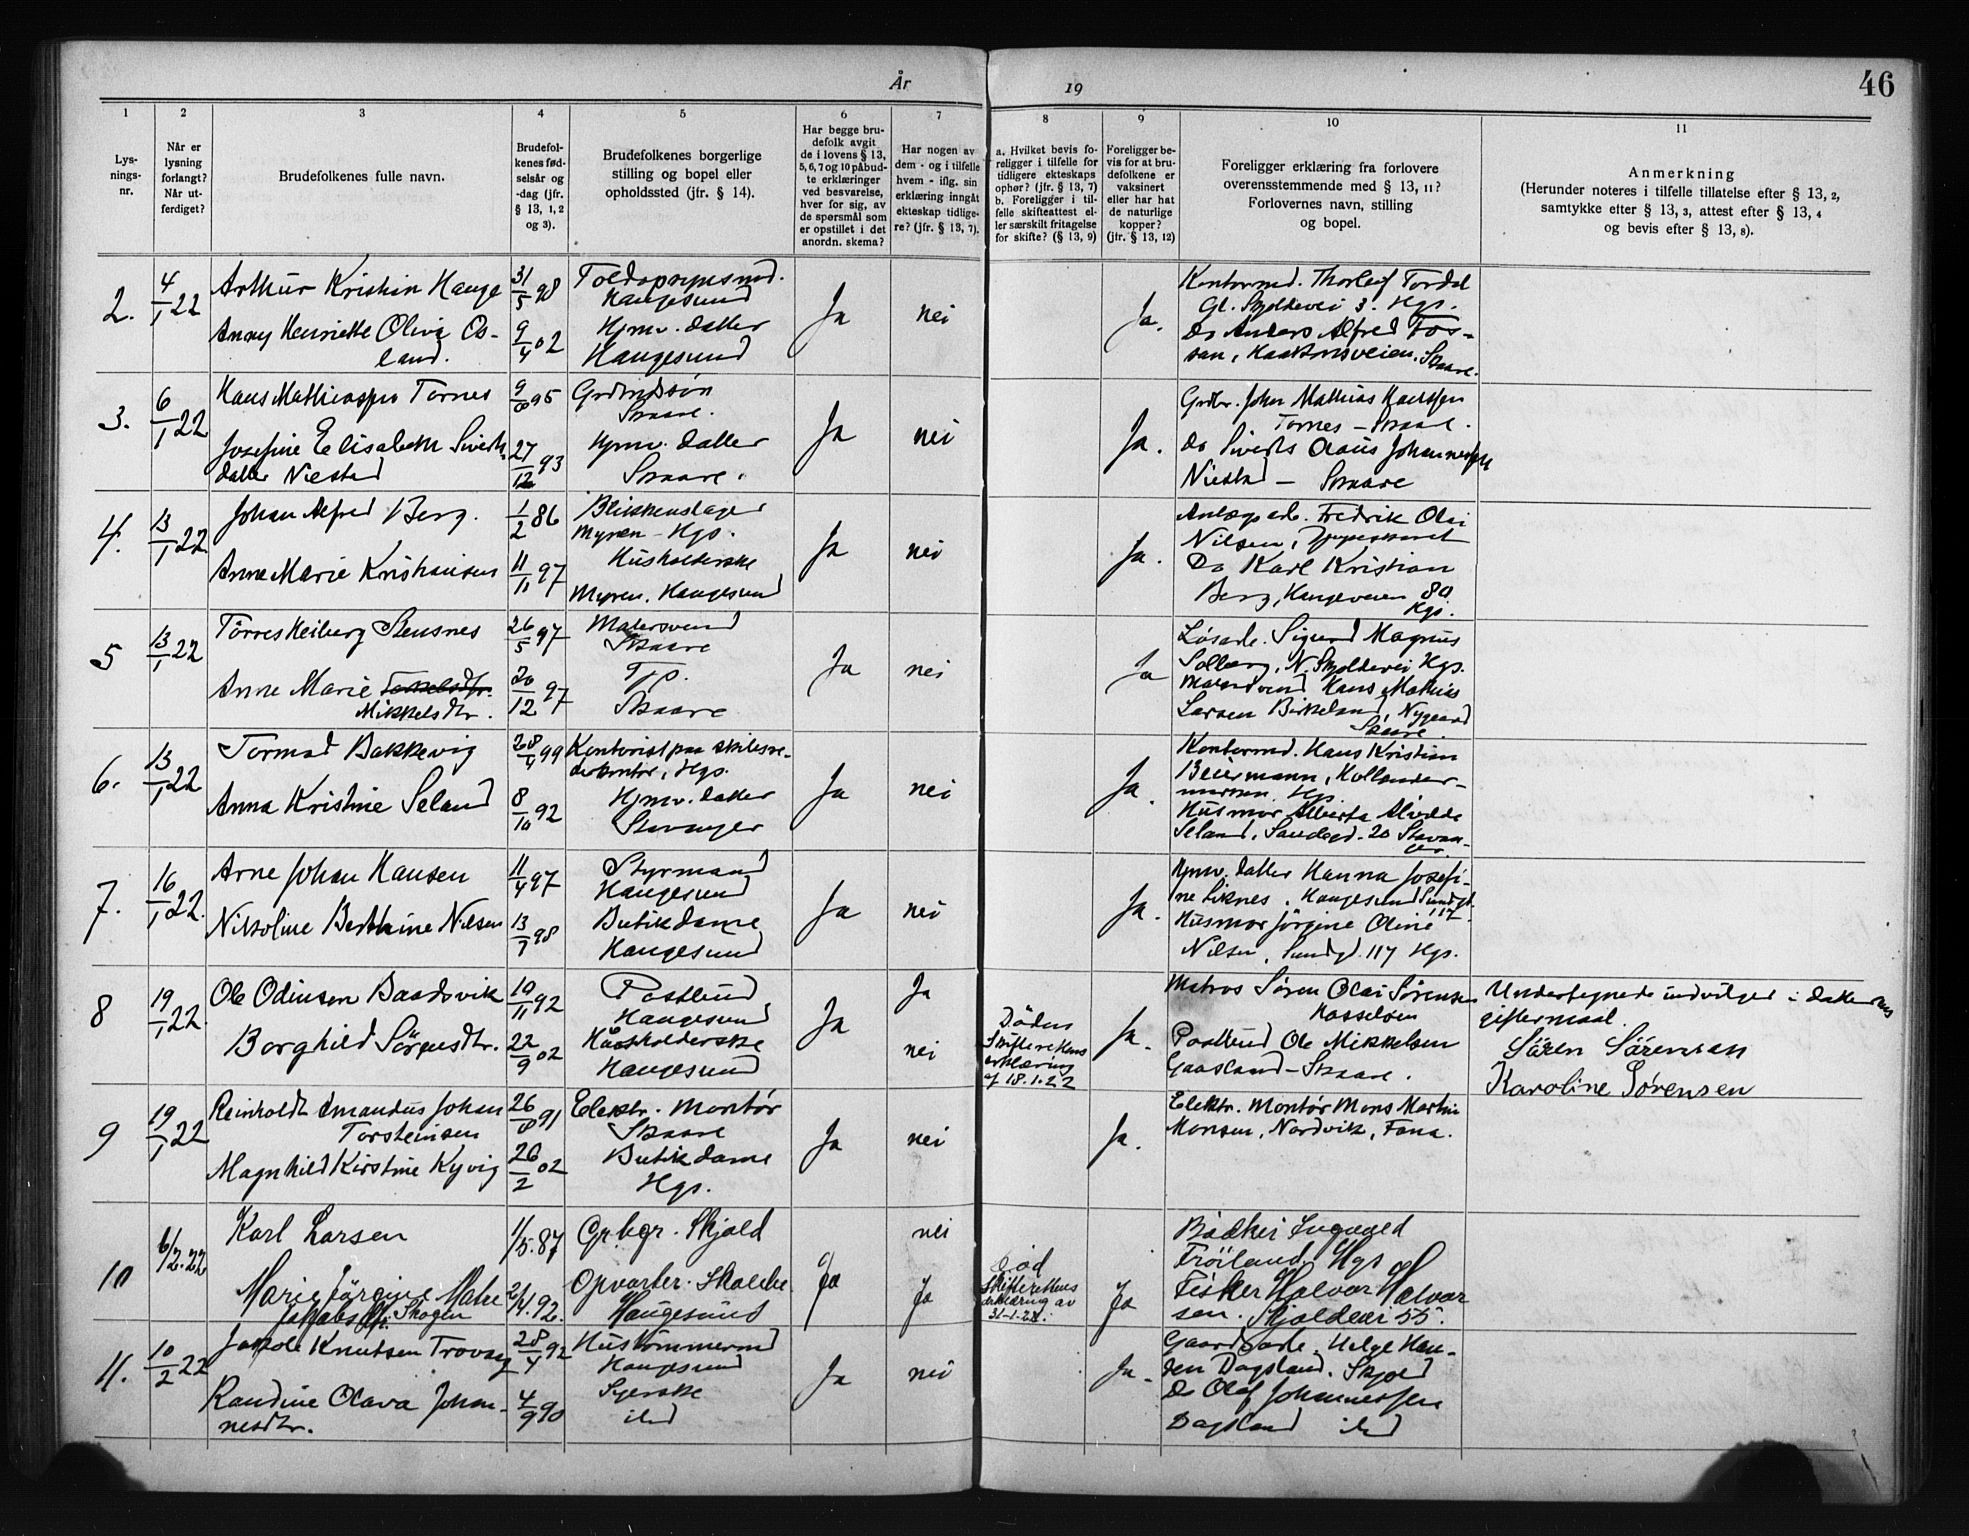 År 19
46
1 2 3 4 5 6 7 8 9 10 11
Lys-
nings-
nr.
Når er
lysning
forlangt?
Når ut-
ferdiget?
Brudefolkenes fulle navn.
Brudefol-
kenes fød-
selsår og
-dag (jfr.
§ 13, 1, 2
og 3).
Brudefolkenes borgerlige
stilling og bopel eller
opholdssted (jfr. § 14).
Har begge bru-
defolk avgit
de i lovens § 13,
5, 6, 7 og 10 påbud-
te erklæringer
ved besvarelse,
hver for sig, av
de spørsmål som
er opstillet i det
anordn. skema?
Har nogen av
dem - og i tilfelle
hvem - iflg. sin
erklæring inngåt
ekteskap tidlige-
re? (jfr. § 13, 7).
a. Hvilket bevis fo-
religger i tilfelle for
tidligere ekteskaps
ophør? (jfr. § 13, 7)
b. Foreligger i til-
felle skifteattest el-
ler særskilt fritagelse
for skifte? (§ 13, 9)
Foreligger be-
vis for at bru-
defolkene er
vaksinert
eller har hat
de naturlige
kopper?
(jfr. § 13, 12)
Foreligger erklæring fra forlovere
overensstemmende med § 13, 11?
Forlovernes navn, stilling
og bopel.
Anmerkning
(Herunder noteres i tilfelle tillatelse efter § 13, 2,
samtykke efter § 13, 3, attest efter § 13, 4
og bevis efter § 13, 8).
2.
4/1 22
Arthur Kristian Hauge
31/5 98
Haugesund
Anny Henriette Olivia Os-
land.
9/4 02
Hjmv. datter
Haugesund
Ja
nei
Ja.
Kontormd. Thorleif Tordal
Gl. Skjoldevei 3. Hgs.
Do Anders Alfred Fos-
san, Haakonsveien. Skaare.
3.
6/1 22
Hans Mathiassen Tornes
9/8 95
Skaare.
Josefine Elisabeth Siverts-
datter Niestad
27/12 93
Hjmv. datter
Skaare.
Ja
nei
Ja.
Grdbr. Johan Mathias
Tornes - Skaare.
Do Siverts Claus Johannessen
Niestad - Skaare
4.
13/1 22
Johan Alfred Berg.
1/2 86
Blikkenslager
Myren - Hgs.
Anne Marie Kristiansen
11/11 97
Husholderske
Myren. Haugesund
Ja
nei
Ja.
Anlægsarb. Fredrik Olai
Nilsen,
Do Karl Kristian
Berg, Haugeveien 80
Hgs.
5
13/1 22
Tørres Heiberg Stensnes
26/5 97
Malersvend
Skaare
Anne Marie
Mikkelsdtr.
20/12 97
Tjp.
Skaare
Ja
nei
Ja
Løsarb. Sigurd Magnus
Solberg, N. Skjoldevei Hgs.
Malersvend Hans Mathias
Larsen Birkeland, Nygaard
Skaare
6.
13/1 22
Tormod Bakkevig
28/4 99
Kontorist paa skibsre-
derkontor, Hgs.
Anna Kristine Seland
8/10 92
Hjmv. datter
Stavanger
Ja
nei
Ja.
Kontormd. Hans Kristian
Beiermann, Hollender-
Hgs
Husmor Alberta
Seland, Sandsgd. 20 Stavan-
ger
7.
16/1 22.
Arne Johan Hansen
11/4 97
Styrmand
Haugesund
Nikoline Berthine Nilsen
13/7 98
Butikdame
Haugesund
Ja
nei
Ja.
Hjmv. datter Hanna Josefi-
ne Liknes, Haugesund Sundgt.
117
Husmor Jørgine Oline
Nilsen, Sundgd. 117 Hgs.
8
19/1 22.
Ole Odinsen Baadsvik
10/11 92
Postbud
Haugesund
Borghild Sørensdtr.
22/9 02
Husholderske
Haugesund
Ja
Ja
nei
Døden
Skifterettens
erklæring
af 18.1.22
Ja.
Matros Søren Olai Sørensen
Postbud Ole Mikkelsen
Gaasland - Skaare.
Undertegnede indvilger i datterens
giftermaal.
Sören Sörensen
Karoline Sørensen
9
19/1 22
Reinholdt Amandus Johan
Torsteinsen
26/8 91
Elektr. Montør
Skaare
Magnhild Kirstine Kyvig
26/2 02
Butikdame
Hgs.
Ja
nei
Ja.
Elektr. Montør Mons Martin
Monsen, Nordvik, Fana.
10
6/2.22
Karl Larsen
1/5.87
Grbgr. Skjold
Marie Jörgine Malve
Jakobsdtr. Skogen
2/4.92.
Opvarter. Skolebe
Haugesund
Ja
nei
Ja
Død
Skifterettens
erklæring av
31-1-22.
Ja
Bødker Ingvald
Tröiland, Hgs
Fisker Halvor Halvor
sen. Skjoldevei 55.
11.
10/2 22
Jakob Knutsen Trovaag
28/4 92
Hustømmermd
Haugesund
Randine Olava Johan-
nesdtr.
4/9 98
Syerske
ibid
Ja
nei
Ja.
Gaardsarb. Helge Han-
sen Dagsland. Skjold
Do Olaf Johannessen
Dagsland ibid